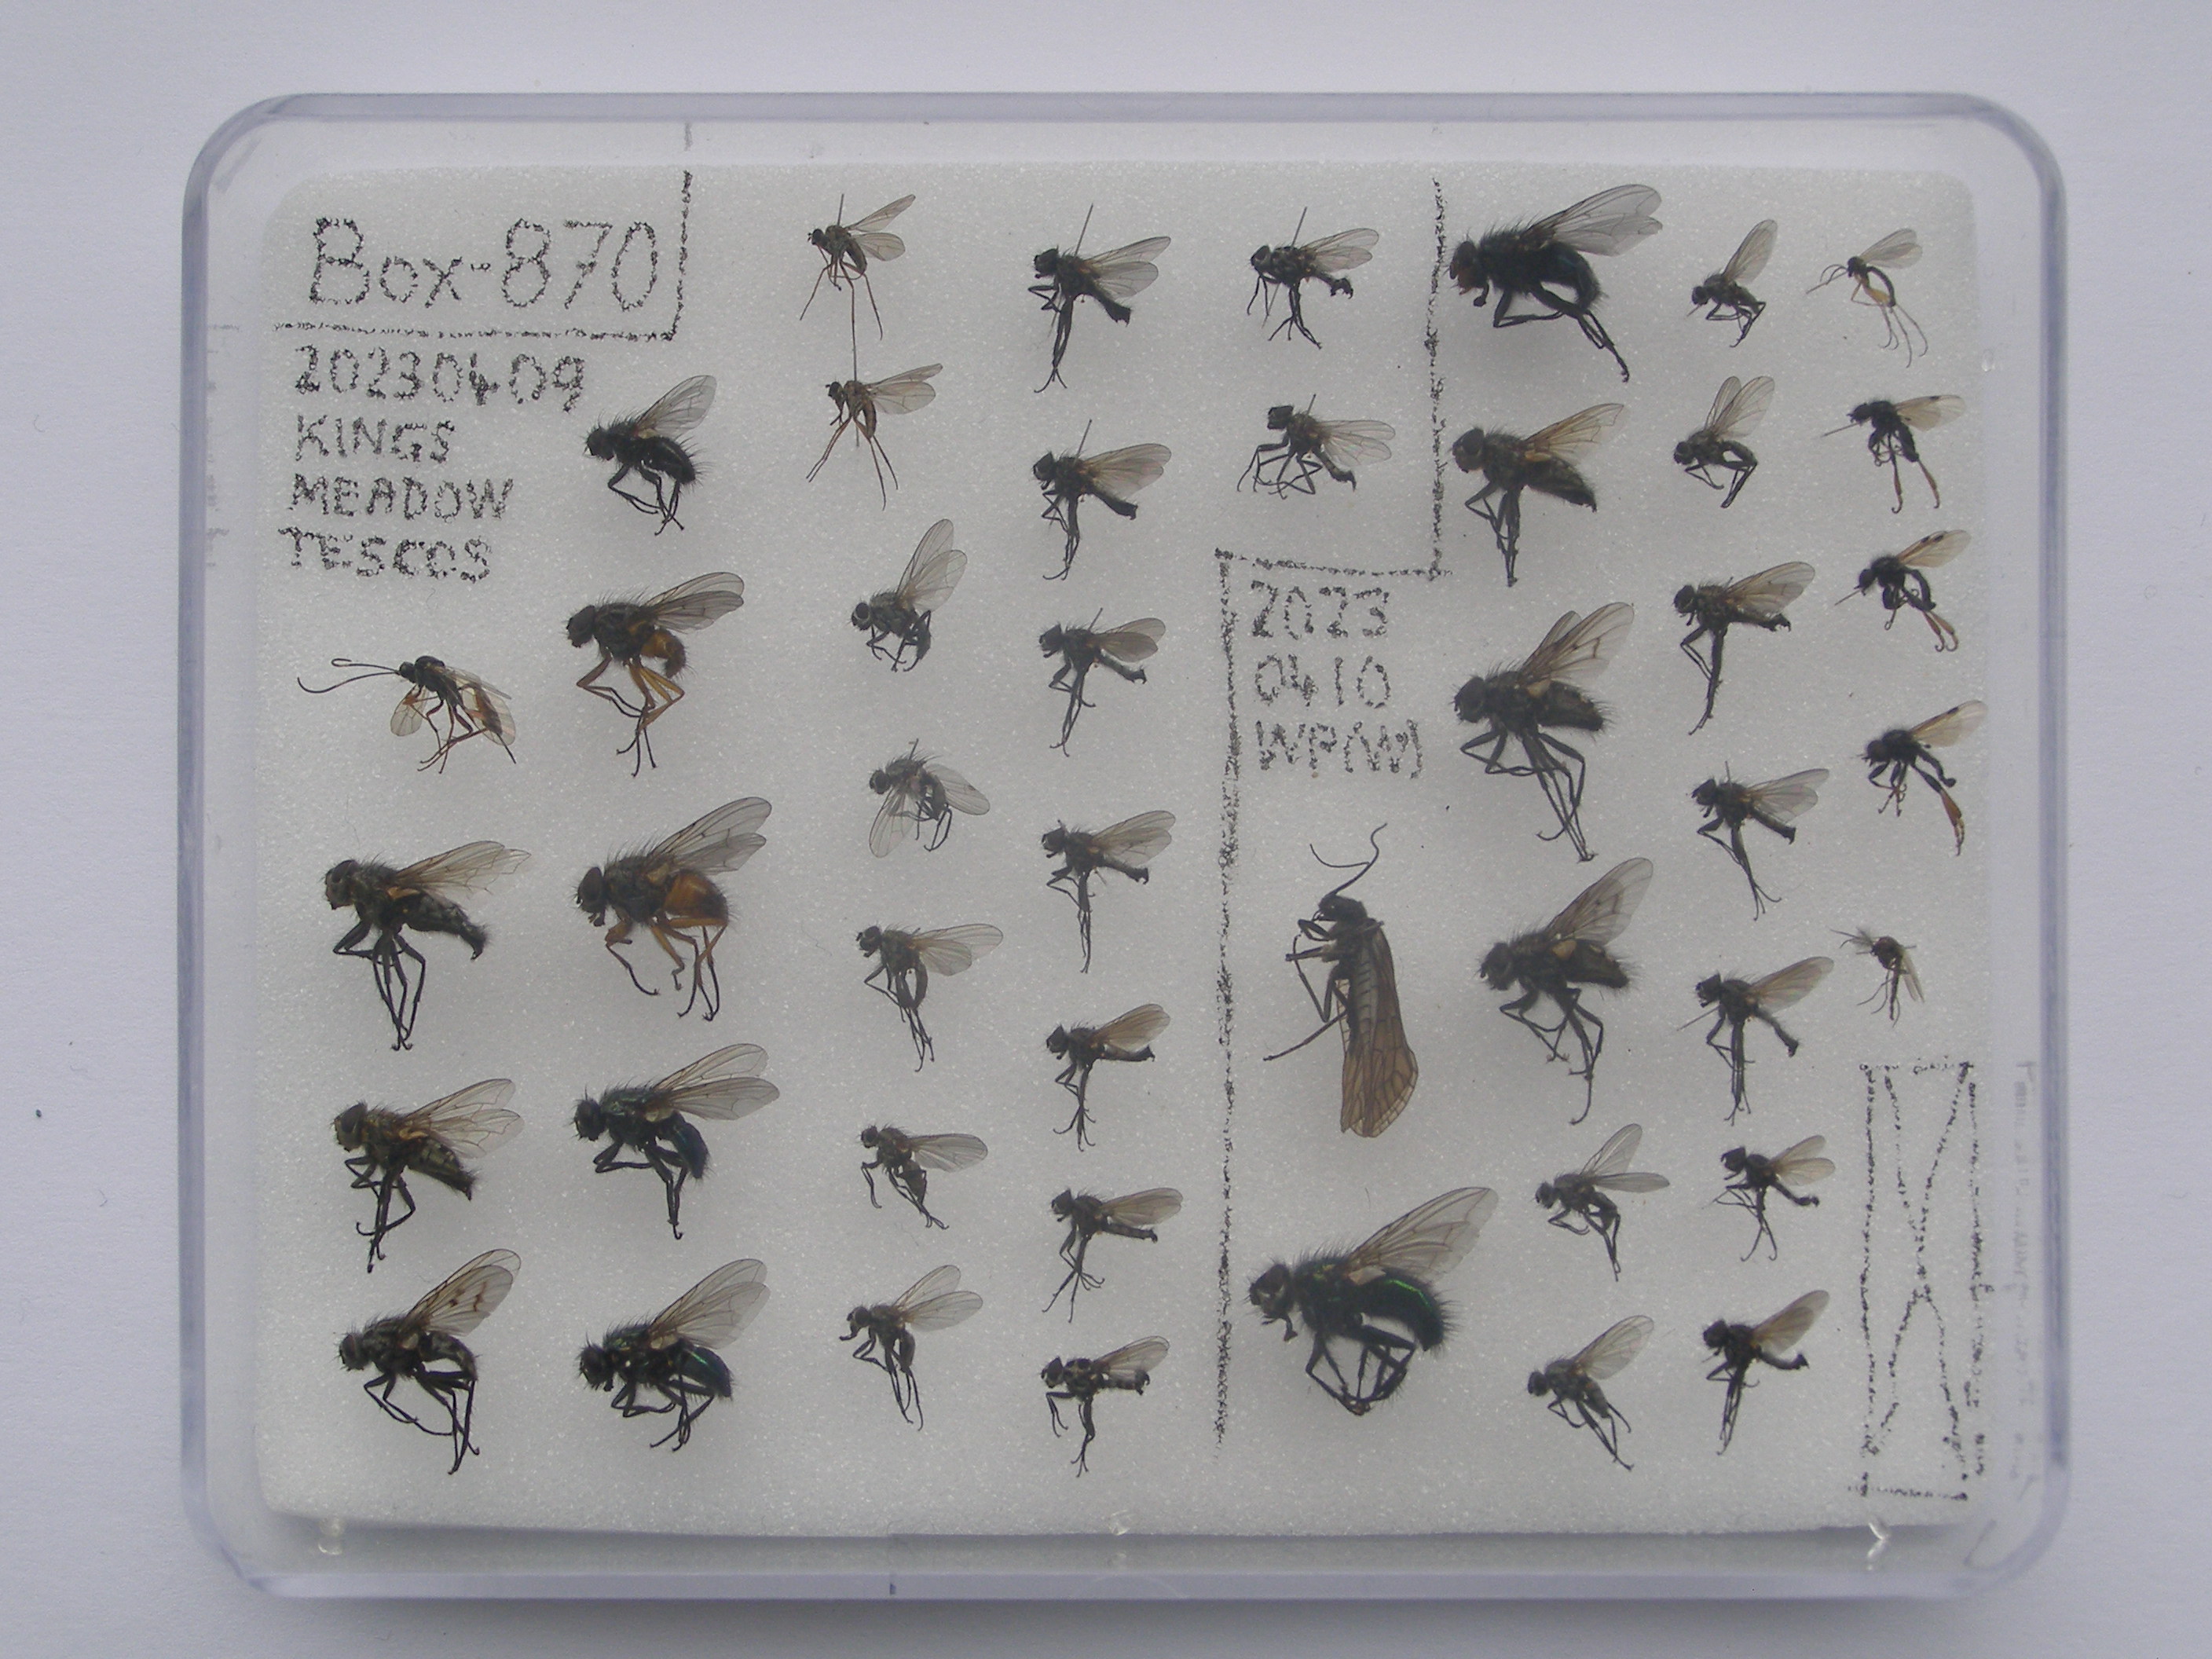 Box-870
20230409
KINGS
MEADOW
TESCOS
2023
0410
WP(W)